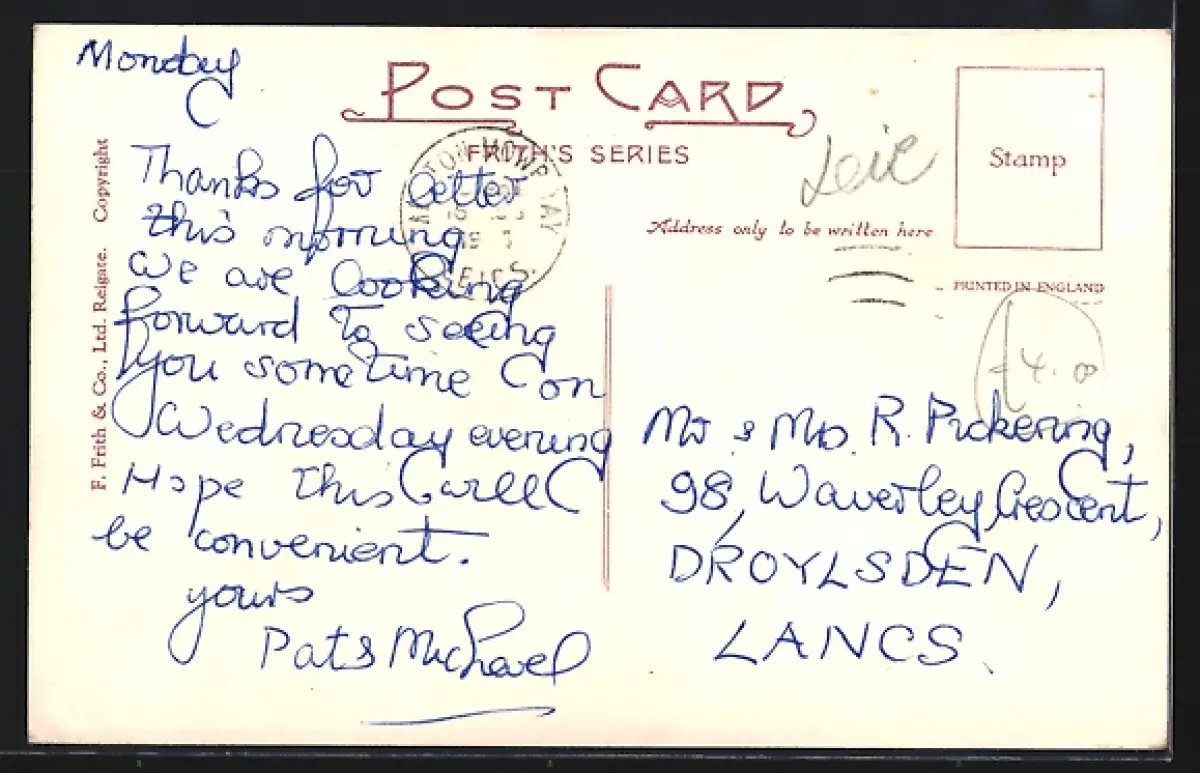 Monday
POST CARD
FRITH'S SERIES
Stamp
Leic
Address only to be written here
PRINTED IN ENGLAND
F. Frith & Co., Ltd. Reigate. Copyright
Thanks for letter
this morning
We are looking
forward to seeing
you sometime on
Wednesday evening
Hope this will
be convenient.
yours
Pat & Michael
4.00
Mr & Mrs. R. Pickering,
98, Waverley Crescent,
DROYLSDEN,
LANCS.
LEICS.